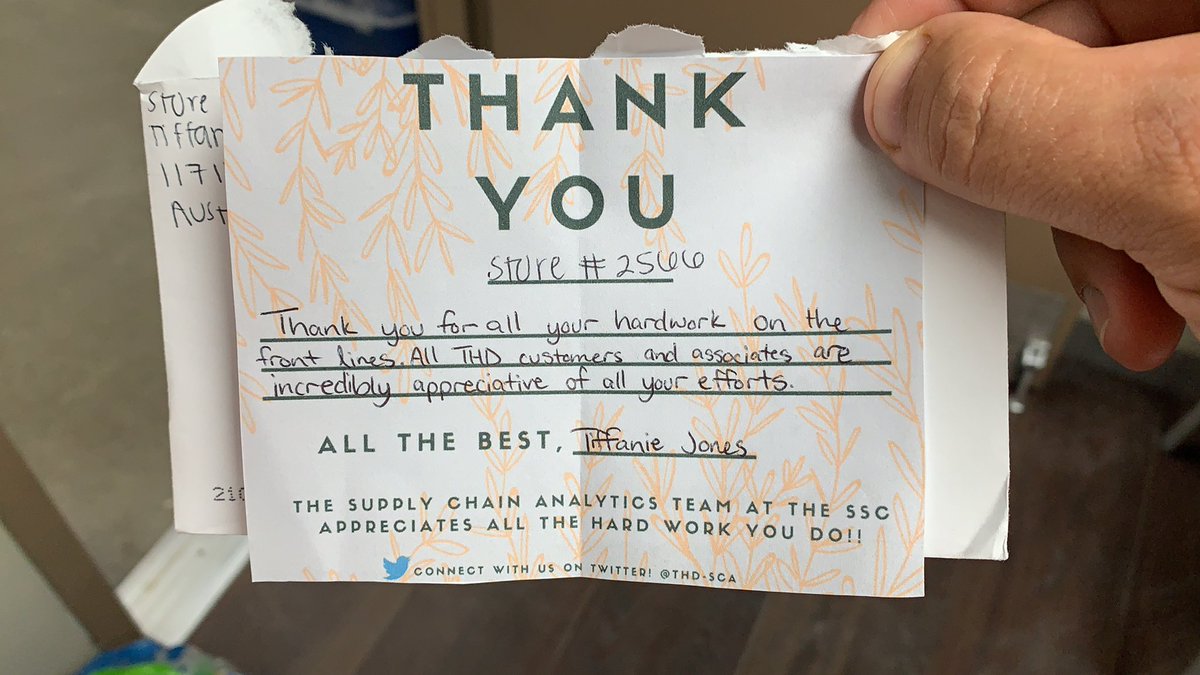 store
1171
Aust
210
THANK
YOU
store # 2566
Thank you for all your hardwork on the
front lines. All THD customers and associates are
incredibly appreciative of all your efforts.
ALL THE BEST, Tiffanie Jones
THE SUPPLY CHAIN ANALYTICS TEAM AT THE SSC
APPRECIATES ALL THE HARD WORK YOU DO!!
CONNECT WITH US ON TWITTER! @THD-SCA